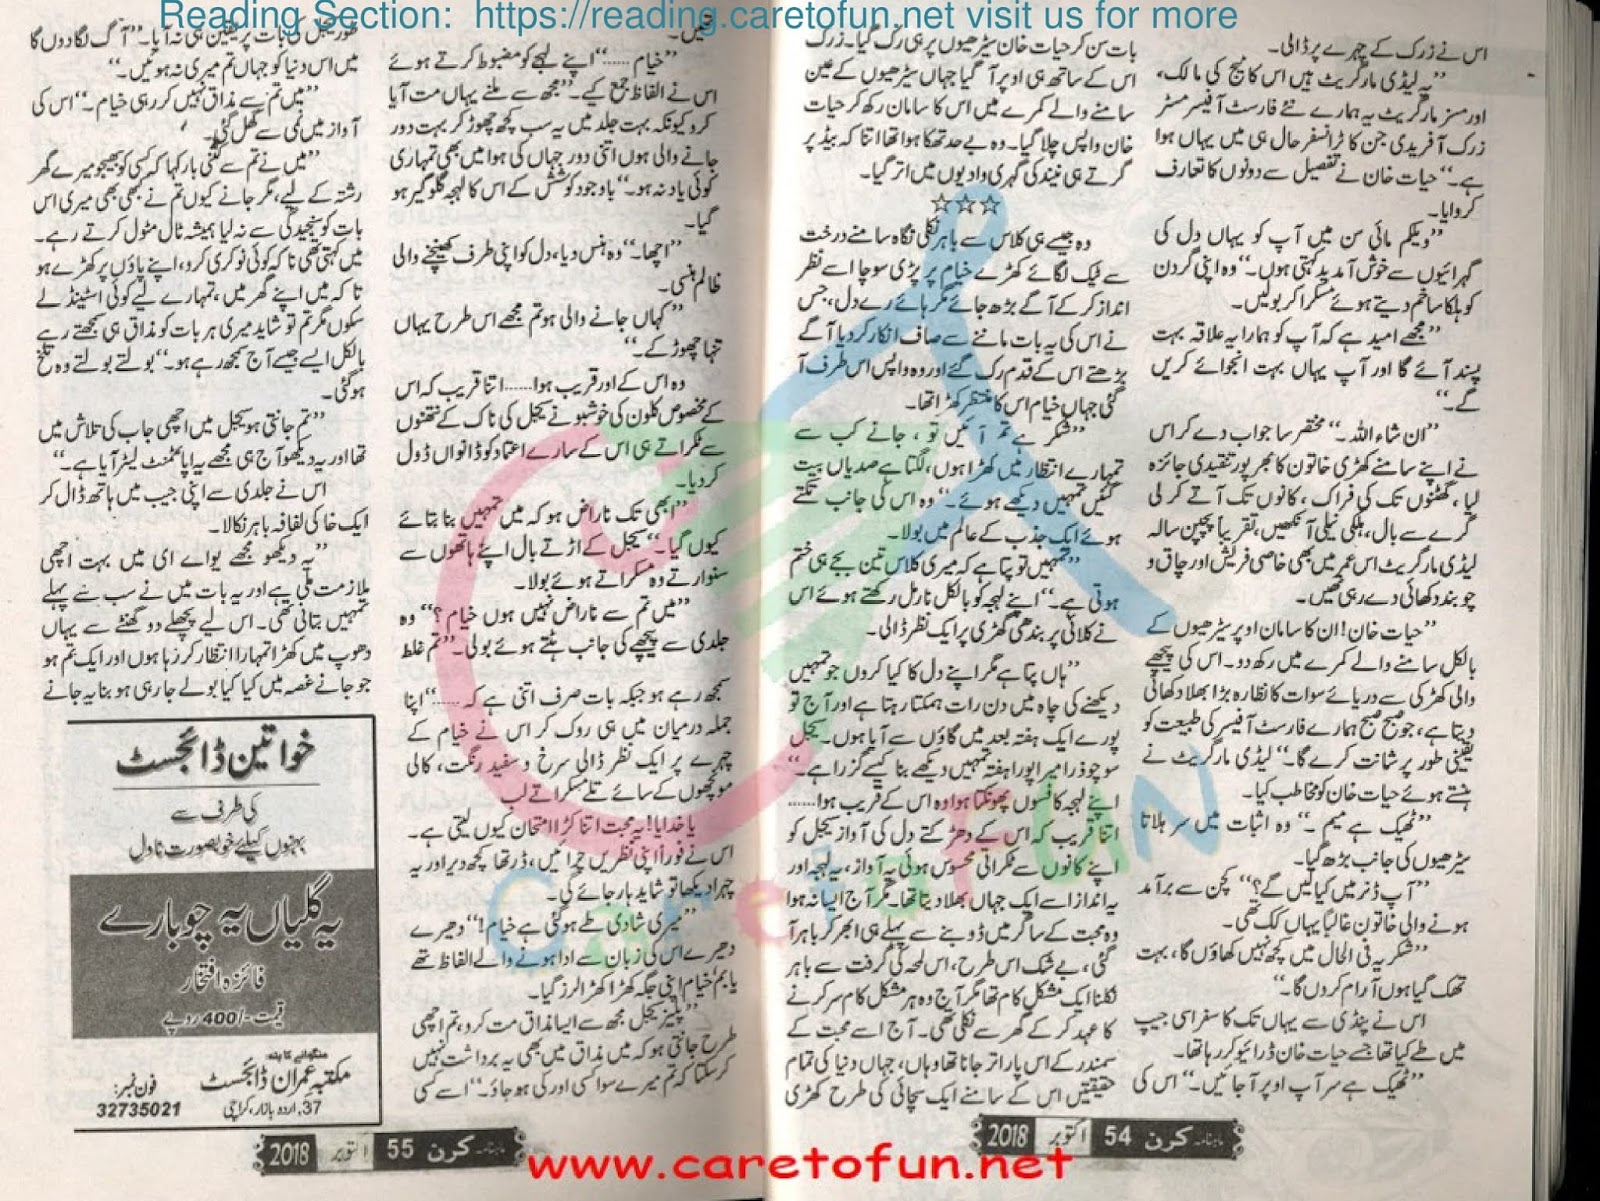 Reading Section: https://reading.caretofun.net visit us for more
اس نے زرک کے چہرے پر ڈالی۔
’’یہ لیڈی مارگریٹ ہیں اس کاٹیج کی مالک،
اور مسز مارگریٹ یہ ہمارے نئے فارسٹ آفیسر مسٹر
زرک آفریدی جن کا ٹرانسفر حال ہی میں یہاں ہوا
ہے۔‘‘ حیات خان نے تفصیل سے دونوں کا تعارف
کروایا۔
’’ویلکم مائی سن میں آپ کو یہاں دل کی
گہرائیوں سے خوش آمدید کہتی ہوں۔‘‘ وہ اپنی گردن
کو ہلکا سا خم دیتے ہوئے مسکرا کر بولیں۔
’’مجھے امید ہے کہ آپ کو ہمارا یہ علاقہ بہت
پسند آئے گا اور آپ یہاں بہت انجوائے کریں
گے۔‘‘
’’ان شاء اللہ۔‘‘ مختصر سا جواب دے کر اس
نے اپنے سامنے کھڑی خاتون کا بھرپور تنقیدی جائزہ
لیا، گھٹنوں تک کی فراک، کانوں تک آتے کرلی
گرے سے بال، ہلکی نیلی آنکھیں، تقریباً پچپن سالہ
لیڈی مارگریٹ اس عمر میں بھی خاصی فریش اور چاق و
چوبند دکھائی دے رہی تھیں۔
’’حیات خان! ان کا سامان اوپر سیڑھیوں کے
بالکل سامنے والے کمرے میں رکھ دو۔ اس کی پیچھے
والی کھڑکی سے دریائے سوات کا نظارہ بڑا بھلا دکھائی
دیتا ہے، جو صبح صبح ہمارے فارسٹ آفیسر کی طبیعت کو
یقینی طور پر شانت کرے گا۔‘‘ لیڈی مارگریٹ نے
ہنستے ہوئے حیات خان کو مخاطب کیا۔
’’ٹھیک ہے میم۔‘‘ وہ اثبات میں سر ہلاتا
سیڑھیوں کی جانب بڑھ گیا۔
’’آپ ڈنر میں کیا لیں گے؟‘‘ کچن سے برآمد
ہونے والی خاتون غالباً یہاں کک تھی۔
’’شکریہ فی الحال میں کچھ نہیں کھاؤں گا، بہت
تھک گیا ہوں آرام کروں گا۔‘‘
اس نے پنڈی سے یہاں تک کا سفر اسی جیپ
میں طے کیا تھا جسے حیات خان ڈرائیو کر رہا تھا۔
’’ٹھیک ہے سر آپ اوپر آجائیں۔‘‘ اس کی
بات سن کر حیات خان سیڑھیوں پر ہی رک گیا۔ زرک
اس کے ساتھ ہی اوپر آگیا جہاں سیڑھیوں کے عین
سامنے والے کمرے میں اس کا سامان رکھ کر حیات
خان واپس چلا گیا۔ وہ بے حد تھکا ہوا تھا اتنا کہ بیڈ پر
گرتے ہی نیند کی گہری وادیوں میں اتر گیا۔
☆☆☆
وہ جیسے ہی کلاس سے باہر نکلی نگاہ سامنے درخت
سے ٹیک لگائے کھڑے خیام پر پڑی سوچا اسے نظر
انداز کر کے آگے بڑھ جائے مگر ہائے رے دل، جس
نے اس کی یہ بات ماننے سے صاف انکار کردیا آگے
بڑھتے اس کے قدم رک گئے اور وہ واپس اس طرف آ
گئی جہاں خیام اس کا منتظر کھڑا تھا۔
’’شکر ہے تم آئیں تو، جانے کب سے
تمہارے انتظار میں کھڑا ہوں، لگتا ہے صدیاں بیت
گئیں تمہیں دیکھے ہوئے۔‘‘ وہ اس کی جانب تکتے
ہوئے ایک جذب کے عالم میں بولا۔
’’تمہیں تو پتا ہے کہ میری کلاس تین بجے ہی ختم
ہوتی ہے۔‘‘ اپنے لہجہ کو بالکل نارمل رکھتے ہوئے اس
نے کلائی پر بندھی گھڑی پر ایک نظر ڈالی۔
’’ہاں پتا ہے مگر اپنے دل کا کیا کروں جو تمہیں
دیکھنے کی چاہ میں دن رات ہمکتا رہتا ہے اور آج تو
پورے ایک ہفتہ بعد میں گاؤں سے آیا ہوں۔ یجل
سوچو ذرا میرا پورا ہفتہ تمہیں دیکھے بنا کیسے گزرا ہے۔‘‘
اپنے لہجہ کا فسوں پھونکتا ہوا وہ اس کے قریب ہوا......
اتنا قریب کہ اس کے دھڑکتے دل کی آواز یجل کو
اپنے کانوں سے ٹکراتی محسوس ہوئی یہ آواز، یہ لہجہ اور
یہ انداز اسے ایک جہاں بھلا دیتا تھا۔ مگر آج ایسا نہ ہوا
وہ محبت کے ساگر میں ڈوبنے سے پہلے ہی ابھر کر باہر آ
گئی، بے شک اس طرح، اس لمحہ کی گرفت سے باہر
نکلنا ایک مشکل کام تھا مگر آج وہ ہر مشکل کام سر کرنے
کا عہد کر کے گھر سے نکلی تھی۔ آج اسے محبت کے
سمندر کے اس پار اتر جانا تھا وہاں، جہاں دنیا کی تمام
حقیقتیں اس کے سامنے ایک سچائی کی طرح کھڑی
ماہنامہ کرن 54 اکتوبر 2018
تھیں۔
’’خیام......‘‘ اپنے لہجے کو مضبوط کرتے ہوئے
اس نے الفاظ جمع کیے۔ ’’مجھ سے ملنے یہاں مت آیا
کرو کیونکہ بہت جلد میں یہ سب کچھ چھوڑ کر بہت دور
جانے والی ہوں اتنی دور جہاں کی ہوا میں بھی تمہاری
کوئی یاد نہ ہو۔‘‘ باوجود کوشش کے اس کا لہجہ گلوگیر ہو
گیا۔
’’اچھا۔‘‘ وہ ہنس دیا، دل کو اپنی طرف کھینچنے والی
ظالم ہنسی۔
’’کہاں جانے والی ہو تم مجھے اس طرح یہاں
تنہا چھوڑ کے۔‘‘
وہ اس کے اور قریب ہوا...... اتنا قریب کہ اس
کے مخصوص کلون کی خوشبو نے یجل کی ناک کے نتھنوں
سے ٹکراتے ہی اس کے سارے اعتماد کو ڈانواں ڈول
کردیا۔
’’ابھی تک ناراض ہو کہ میں تمہیں بنا بتائے
کیوں گیا۔‘‘ یجل کے اڑتے بال اپنے ہاتھوں سے
سنوارتے وہ مسکراتے ہوئے بولا۔
’’میں تم سے ناراض نہیں ہوں خیام؟‘‘ وہ
جلدی سے پیچھے کی جانب ہٹتے ہوئے بولی۔ ’’تم غلط
سمجھ رہے ہو جبکہ بات صرف اتنی ہے کہ......‘‘ اپنا
جملہ درمیان میں ہی روک کر اس نے خیام کے
چہرے پر ایک نظر ڈالی سرخ و سفید رنگت، کالی
مونچھوں کے سائے تلے مسکراتے لب
یا خدایا! یہ محبت اتنا کڑا امتحان کیوں لیتی ہے۔
اس نے فوراً اپنی نظریں چرائیں، ڈر تھا کچھ دیر اور یہ
چہرا دیکھا تو شاید ہار جائے گی۔
’’میری شادی طے ہوگئی ہے خیام!‘‘ دھیرے
دھیرے اس کی زبان سے ادا ہونے والے الفاظ تھے
یا بم خیام اپنی جگہ کھڑا کھڑا لرز گیا۔
’’پلیز یجل مجھ سے ایسا مذاق مت کرو، تم اچھی
طرح جانتی ہو کہ میں مذاق میں بھی یہ برداشت نہیں
کرسکتا کہ تم میرے سوا کسی اور کی ہو جاؤ۔‘‘ اسے کسی
طور یجل کی بات پر یقین ہی نہ آیا۔ ’’آگ لگا دوں گا
میں اس دنیا کو جہاں تم میری نہ ہوئیں۔‘‘
’’میں تم سے مذاق نہیں کر رہی خیام۔‘‘ اس کی
آواز میں نمی سے گھل گئی۔
’’میں نے تم سے کتنی بار کہا کہ کسی کو بھیجو میرے گھر
رشتہ کے لیے، مگر جانے کیوں تم نے کبھی بھی میری اس
بات کو سنجیدگی سے نہ لیا ہمیشہ ٹال مٹول کرتے رہے۔
میں کہتی تھی نا کہ کوئی نوکری کرو، اپنے پاؤں پر کھڑے ہو
تا کہ میں اپنے گھر میں، تمہارے لیے کوئی اسٹینڈ لے
سکوں مگر تم تو شاید میری ہر بات کو مذاق ہی سمجھتے رہے
بالکل ایسے جیسے آج سمجھ رہے ہو۔‘‘ بولتے بولتے وہ تلخ
ہوگئی۔
’’تم جانتی ہو یجل میں اچھی جاب کی تلاش میں
تھا اور یہ دیکھو آج ہی مجھے یہ اپائمنٹ لیٹر آیا ہے۔‘‘
اس نے جلدی سے اپنی جیب میں ہاتھ ڈال کر
ایک خاکی لفافہ باہر نکالا۔
’’یہ دیکھو مجھے یو اے ای میں بہت اچھی
ملازمت ملی ہے اور یہ بات میں نے سب سے پہلے
تمہیں بتانی تھی۔ اس لیے پچھلے دو گھنٹے سے یہاں
دھوپ میں کھڑا تمہارا انتظار کر رہا ہوں اور ایک تم ہو
جو جانے غصہ میں کیا کیا بولے جا رہی ہو بنا یہ جانے
خواتین ڈائجسٹ
کی طرف سے
بہنوں کیلئے خوبصورت ناول
یہ گلیاں یہ چوبارے
فائزہ افتخار
قیمت -/400 روپے
منگوانے کا پتہ:
مکتبہ عمران ڈائجسٹ
37, اردو بازار، کراچی
فون نمبر:
32735021
ماہنامہ کرن 55 اکتوبر 2018
Caretofun
www.caretofun.net